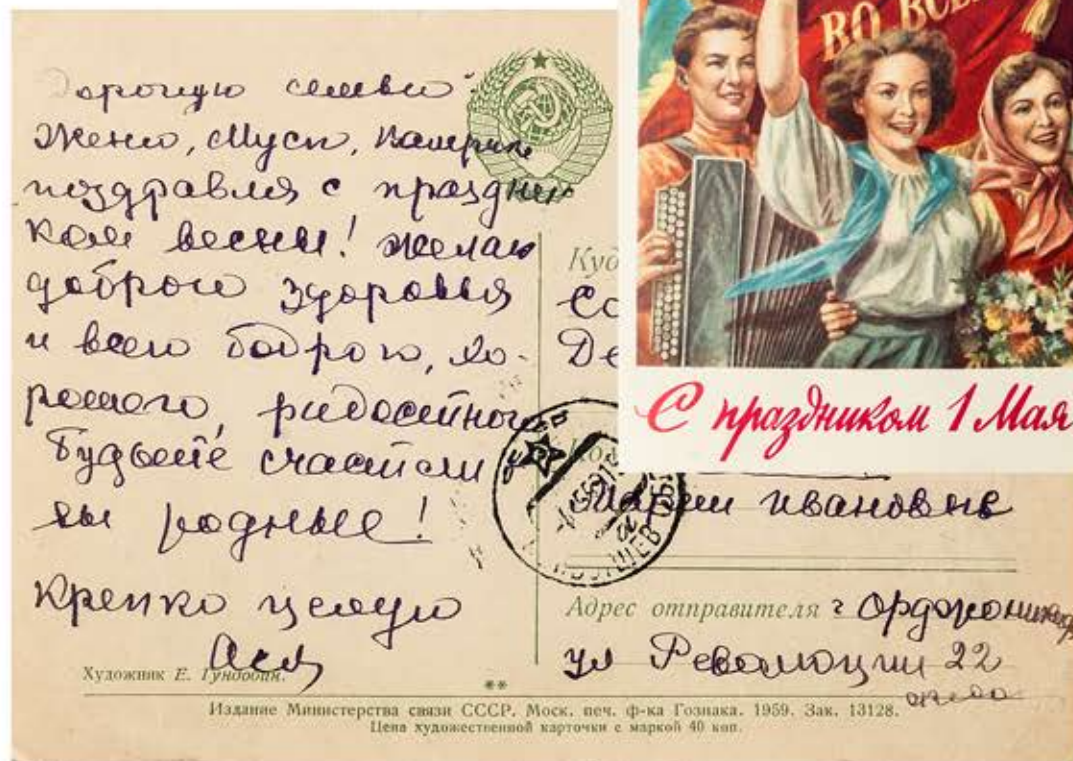 Дорогую семью
Женю, Мусю, Валерика
поздравляю с праздни
ком весны! желаю
доброго здоровья
и всего доброго, хо-
рошего, радостного
Будьте счастли
вы родные!
Крепко целую
Ася
Художник Е. Гундобин.
Марии Ивановне
Адрес отправителя г Орджоникидзе
ул Революции 22
Издание Министерства связи СССР. Моск. печ. ф-ка Гознака. 1959. Зак. 13128.
Цена художественной карточки с маркой 40 коп.
ВО ВСЕ
С праздником 1 Мая